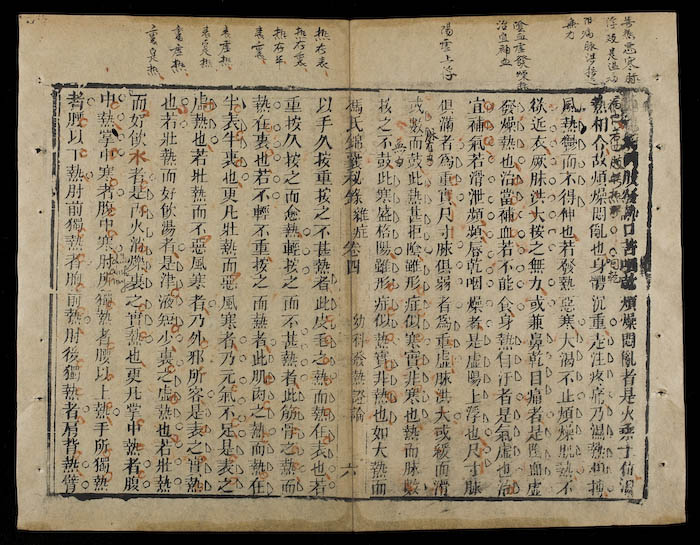 腹痛口苦咽乾煩燥悶亂者是火乘土位濕
熱相合故煩燥悶亂也身體沉重走注疼痛乃濕熱相搏
風熱鬱而不得伸也若發熱惡寒大渴不止煩燥肌熱不
欲近衣厥脉洪大按之無力或兼鼻乾目痛者是陰血虛
發燥熱也治當補血若不能食身熱自汗者是氣虛也治
宜補氣若滑泄頻頻唇乾咽燥者是虛陽上浮也尺寸脉
俱滿者為重實尺寸脉俱弱者為重虛脉洪大或緩而滑
或數而鼓此熱甚拒陰雖形症似寒實非寒也熱而脉數
按之不鼓此寒盛格陽雖形症似熱實非熱也如大熱而
馮氏錦囊秘錄雜症 卷四 幼科發熱證論 六
以手久按重按之不甚熱者此皮毛之熱而熱在表也若
重按久按之而愈熱輕按之而不甚熱者此筋骨之熱而
熱在裏也若不輕不重按之而熱者此肌肉之熱而熱在
半表半裏也更凡壯熱而惡風寒者乃元氣不足是表之
虛熱也若壯熱而不惡風寒者乃外邪所容是表之實熱
也若壯熱而好飲湯者是津液短少裏之虛熱也若壯熱
而好飲水者是內火消爍裏之實熱也更凡掌中熱者腹
中熱掌中寒者腹中寒肘所獨熱者腰以上熱手所獨熱
者腰以下熱肘前獨熱者膺前熱肘後獨熱者肩背熱臂
陽虛上浮